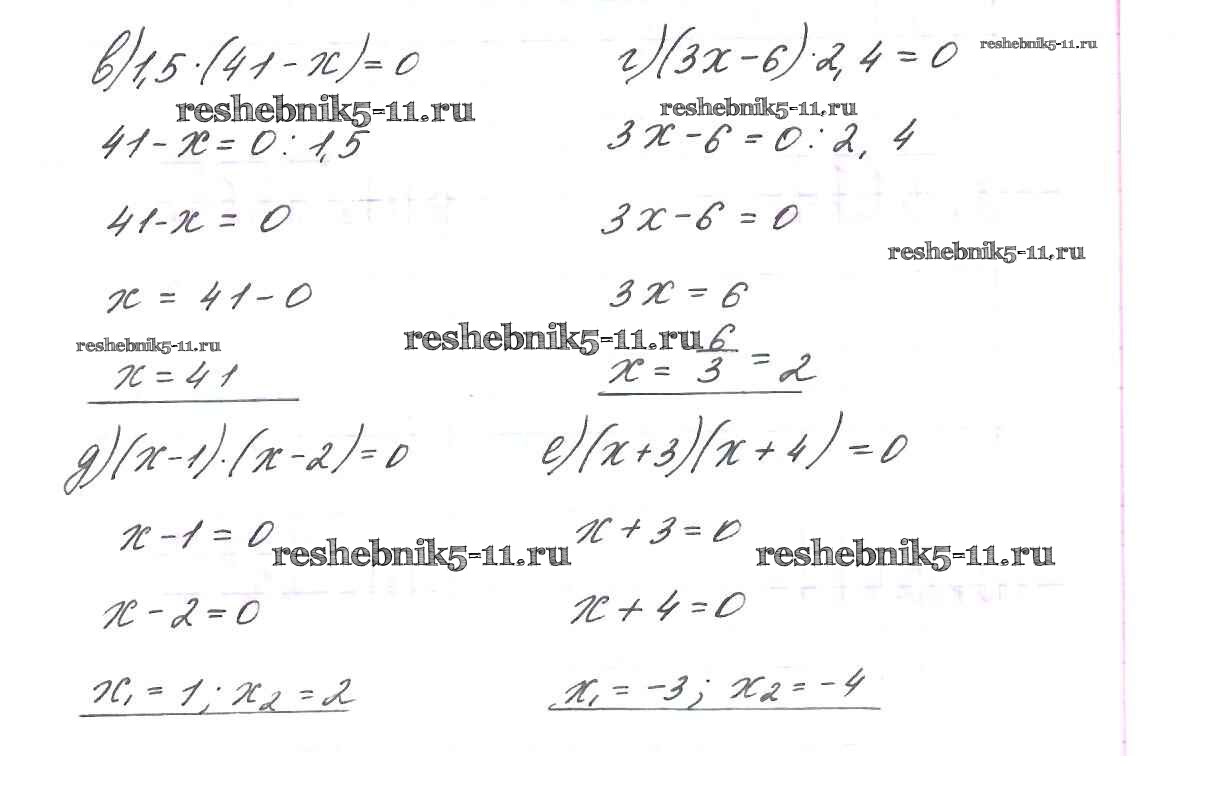 в) 1,5·(41-x)=0
reshebnik5-11.ru
41-x=0:1,5
41-x=0
x=41-0
reshebnik5-11.ru
x=41
г) (3x-6)·2,4=0
reshebnik5-11.ru
reshebnik5-11.ru
3x-6=0:2,4
3x-6=0
reshebnik5-11.ru
3x=6
reshebnik5-11.ru
x=6/3=2
д) (x-1)·(x-2)=0
x-1=0
reshebnik5-11.ru
x-2=0
x₁=1; x₂=2
е) (x+3)(x+4)=0
x+3=0
reshebnik5-11.ru
x+4=0
x₁=-3; x₂=-4